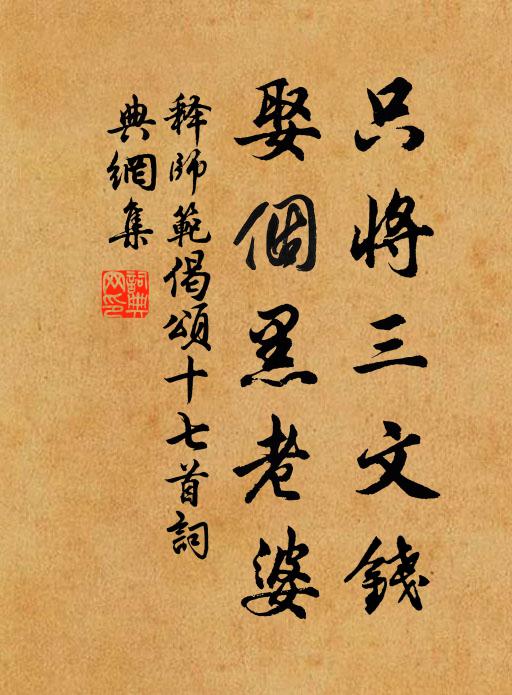 只将三文錢
娶個黑老婆
释師範偈頌十七首詞
典網集
詞典
网印